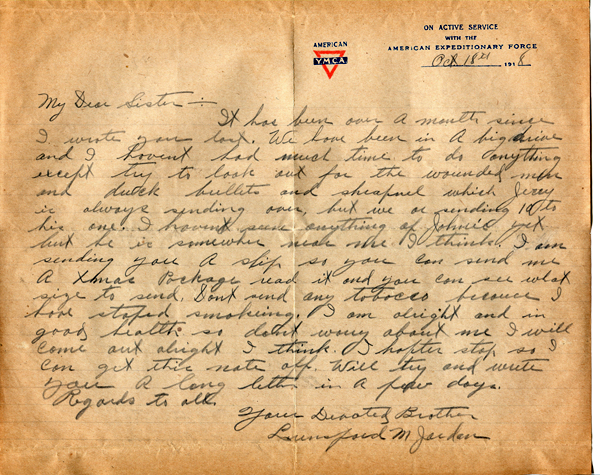 ON ACTIVE SERVICE
WITH THE
AMERICAN EXPEDITIONARY FORCE
AMERICAN
YMCA
Oct 18th 1918
My Dear Sister :-
It has been over a month since
I wrote you last. We have been in a big drive
and I havent had much time to do anything
except try to look out for the wounded men
and dutch bullets and shrapnel which Jerry
is always sending over, but we or sending 10 to
his one. I havent seen anything of Johnie yet
but he is somewher near me I think. I am
sending you A slip so you can send me
A Xmas Package read it and you can see what
size to send. Dont send any tobacco because I
have stoped smoking. I am alright and in
good health so don't worry about me I will
come out alright I think. I hafter stop so I
can get this note off. Will try and write
you A long letter in a few days.
Regards to all.
Your Devoted Brother
Lunsford M Jordan